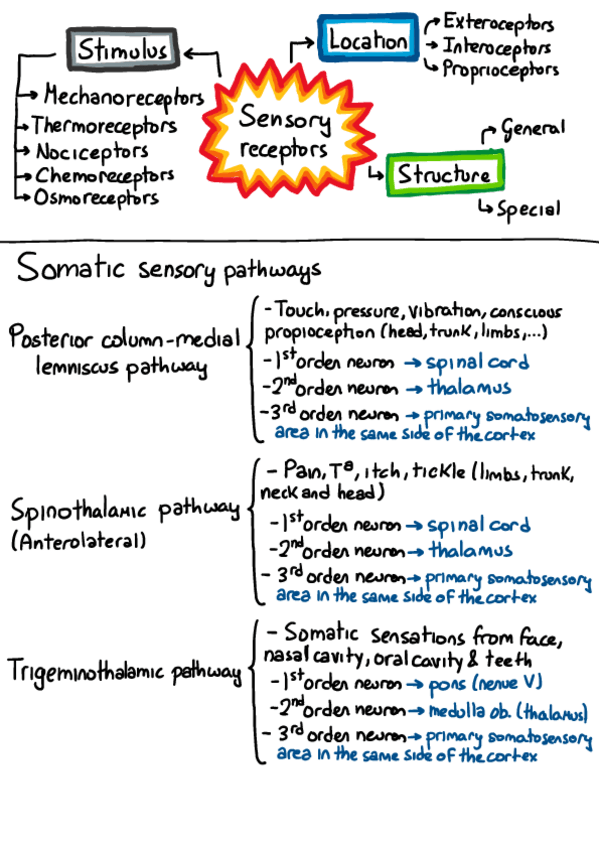 Stimulus
Mechanoreceptors
Thermoreceptors
Nociceptors
Chemoreceptors
Osmoreceptors
Sensory
receptors
Location
Exteroceptors
Interoceptors
Proprioceptors
Structure
General
Special
Somatic sensory pathways
Posterior column-medial
lemniscus pathway
- Touch, pressure, vibration, conscious
propioception (head, trunk, limbs,...)
- 1st order neuron → spinal cord
- 2nd order neuron → thalamus
- 3rd order neuron → primary somatosensory
area in the same side of the cortex
Spinothalamic pathway
(Anterolateral)
- Pain, Tª, itch, tickle (limbs, trunk,
neck and head)
- 1st order neuron → spinal cord
- 2nd order neuron → thalamus
- 3rd order neuron → primary somatosensory
area in the same side of the cortex
Trigeminothalamic pathway
- Somatic sensations from face,
nasal cavity, oral cavity & teeth
- 1st order neuron → pons (nerve V)
- 2nd order neuron → medulla ob. (thalamus)
- 3rd order neuron → primary somatosensory
area in the same side of the cortex